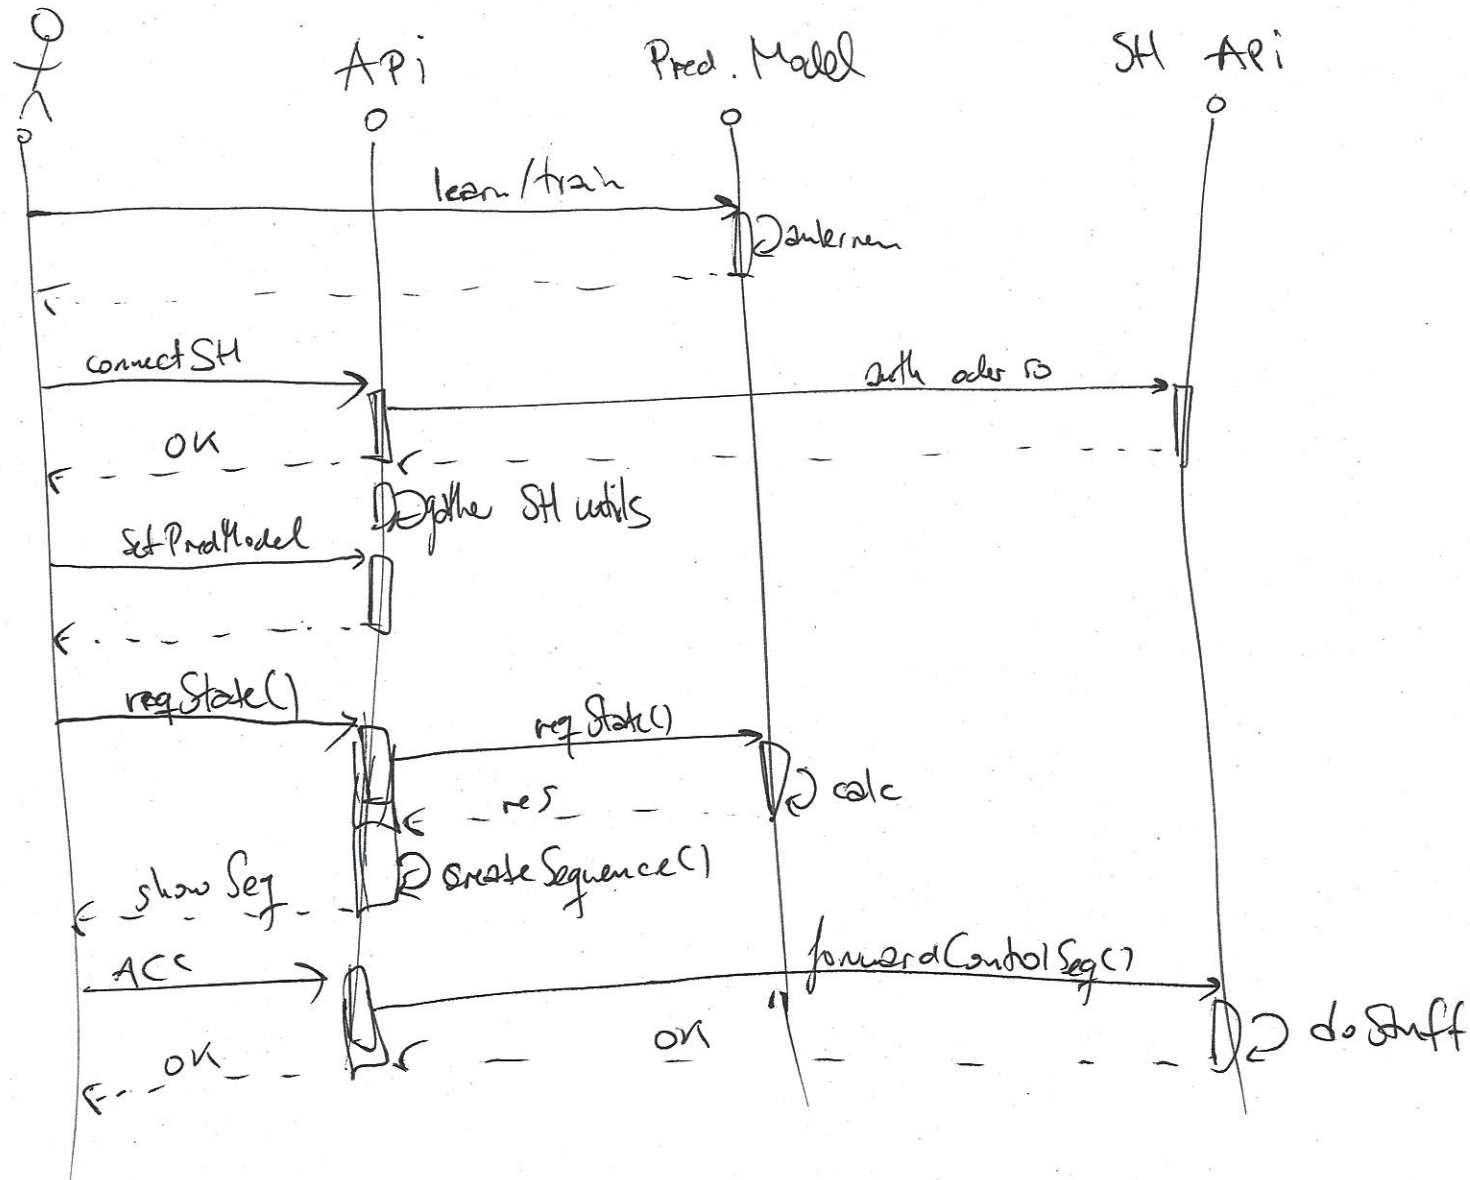 Api
Pred. Model
SH Api
learn/train
anlernen
connectSH
auth oder so
OK
gather SH utils
SetPredModel
reqState()
reqState()
calc
res
createSequence()
show Seq
ACC
forwardControlSeq()
OK
do Stuff
OK